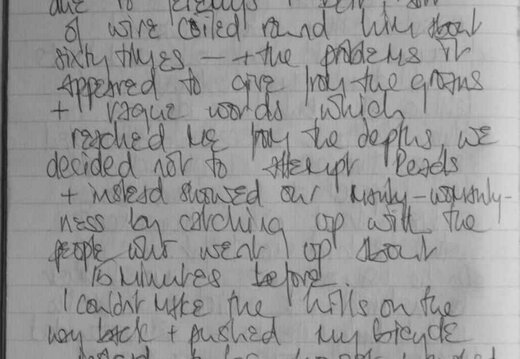 of wire coiled round him about
sixty times — + the problems it
appeared to give from the groans
+ vague words which
reached me from the depths we
decided not to attempt Reads
+ instead showed our manly-womanly-
ness by catching up with the
people who went up about
15 minutes before.
I couldn't make the hills on the
way back + pushed my bicycle